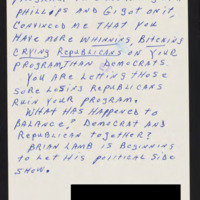 PHILLIPS AND GIGOT ON IT,
CONVINCED ME THAT YOU
HAVE MORE WHINNING, BITCHING
CRYING REPUBLICANS ON YOUR
PROGRAM, THAN DEMOCRATS.
YOU ARE LETTING THOSE
SORE LOSING REPUBLICANS
RUIN YOUR PROGRAM.
WHAT HAS HAPPENED TO
BALANCE? DEMOCRAT AND
REPUBLICAN TOGETHER?
BRIAN LAMB IS BEGINNING
TO LET HIS POLITICAL SIDE
SHOW.